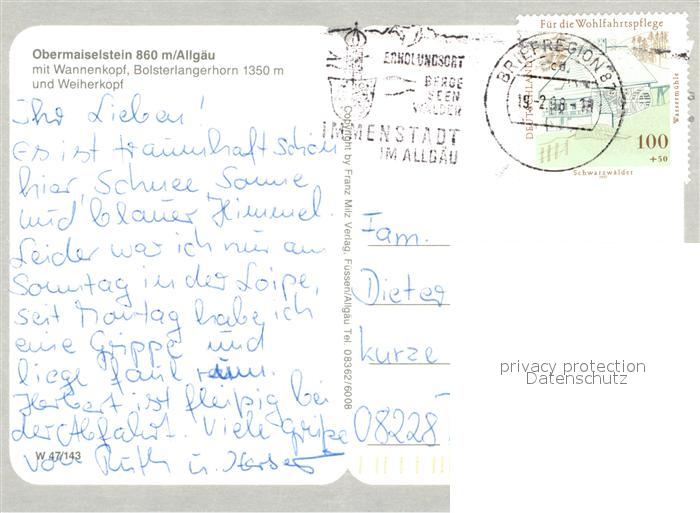 Obermaiselstein 860 m/Allgäu
mit Wannenkopf, Bolsterlangerhorn 1350 m
und Weiherkopf
Ihr Lieben!
Es ist traumhaft schön
hier, Schnee, Sonne
und blauer Himmel.
Leider war ich nur am
Sonntag in der Loipe,
seit Montag habe ich
eine Grippe und
liege faul rum.
Herbert ist fleißig bei
der Abfahrt. Viele Grüße
von Ruth u. Herbert
W 47/143
Copyright by Franz Milz Verlag, Füssen/Allgäu Tel. 08362/6008
ERHOLUNGSORT
BERGE
SEEN
WÄLDER
IMMENSTADT
IM ALLGÄU
BRIEFREGION 87
19.-2.98
Für die Wohlfahrtspflege
DEUTSCHLAND
Wassermühle
100
+50
Schwarzwälder
Fam.
Dieter
Kurze
08228
privacy protection
Datenschutz